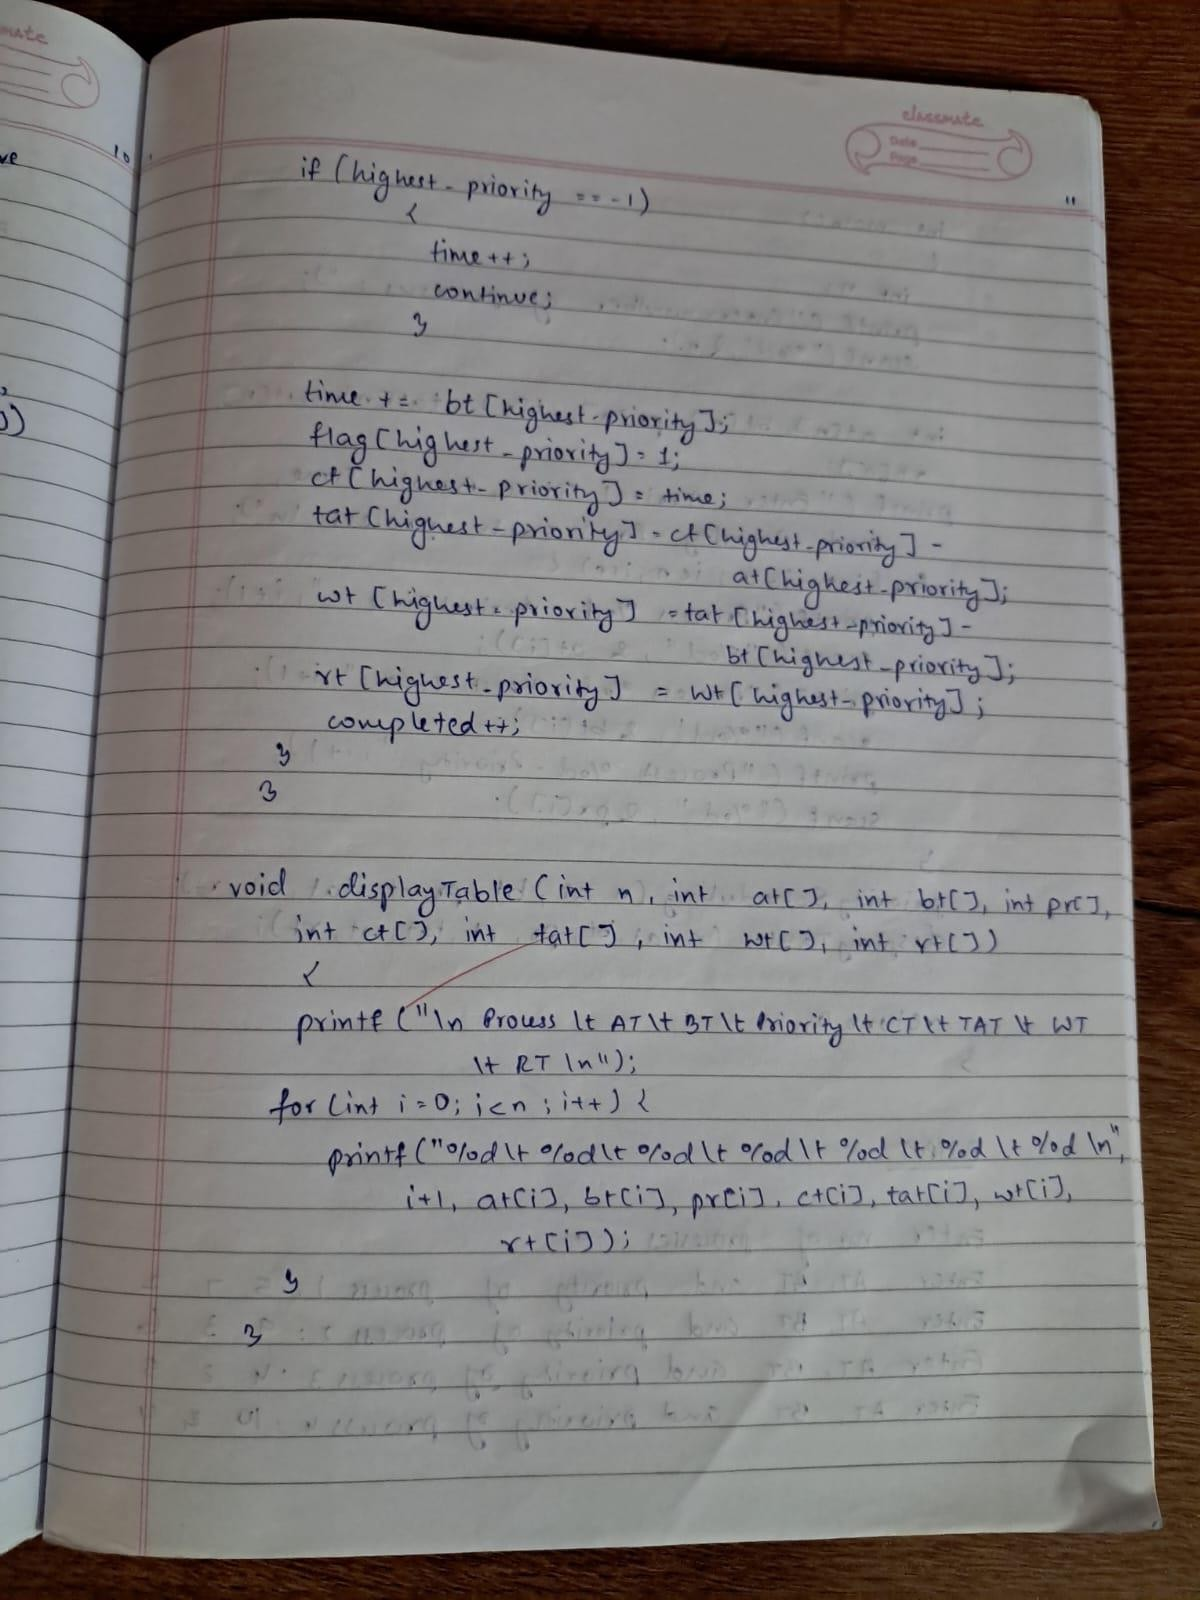 classmate
Date
Page
10
11
if (highest_priority == -1)
{
time++;
continue;
}
time += bt[highest-priority];
flag[highest_priority] = 1;
ct[highest-priority] = time;
tat[highest-priority] = ct[highest-priority] -
at[highest-priority];
wt[highest-priority] = tat[highest-priority] -
bt[highest_priority];
rt[highest-priority] = wt[highest-priority];
completed++;
}
}
void displayTable (int n, int at[], int bt[], int pr[],
int ct[], int tat[], int wt[], int rt[])
{
printf ("\n Process \t AT \t BT \t Priority \t CT \t TAT \t WT
\t RT \n");
for (int i=0; i<n; i++) {
printf ("%d \t %d \t %d \t %d \t %d \t %d \t %d \n",
i+1, at[i], bt[i], pr[i], ct[i], tat[i], wt[i],
rt[i]);
}
}